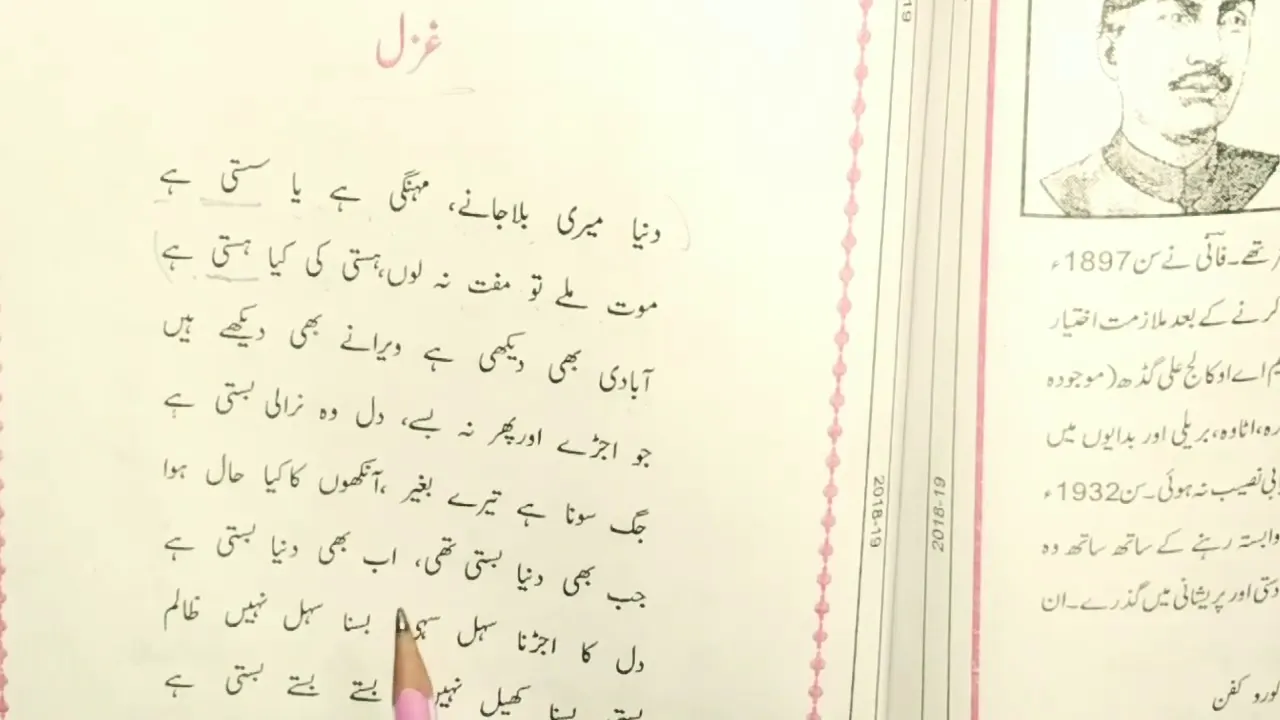 غزل
دنیا میری بلاجانے، مہنگی ہے یا سستی ہے
موت ملے تو مفت نہ لوں،ہستی کی کیا ہستی ہے
آبادی بھی دیکھی ہے ویرانے بھی دیکھے ہیں
جو اجڑے اورپھر نہ بسے، دل وہ نرالی بستی ہے
جگ سونا ہے تیرے بغیر ،آنکھوں کاکیا حال ہوا
جب بھی دنیا بستی تھی، اب بھی دنیا بستی ہے
دل کا اجڑنا سہل سہی بسنا سہل نہیں ظالم
بسنا کھیل نہیں بستے بستے بستی ہے
19
2018-19
2018-19
تھے۔فانی نے سن 1897ء
کرنے کے بعد ملازمت اختیار
ایم اے او کالج علی گڈھ (موجودہ
اٹاوہ، بریلی اور بدایوں میں
نصیب نہ ہوئی۔سن 1932ء
وابستہ رہنے کے ساتھ ساتھ وہ
اور پریشانی میں گذرے۔ان
کفن